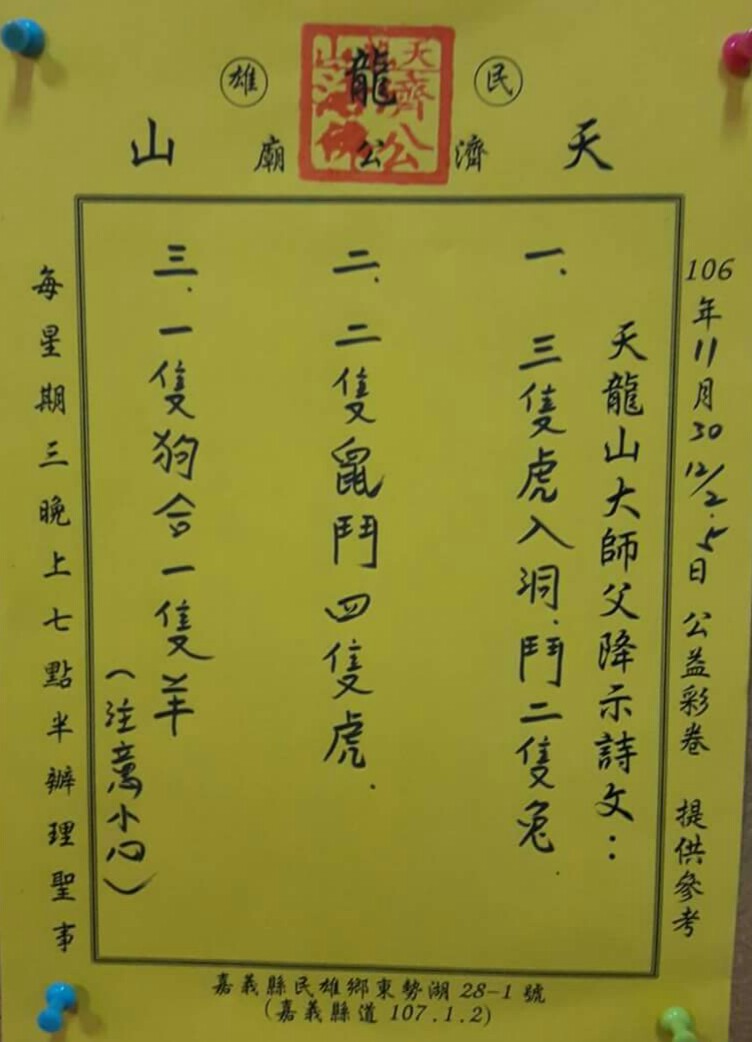 民雄
天龍山
濟公廟
天濟公
106年11月30 12/2.5日 公益彩卷 提供參考
天龍山大師父降示詩文：
一、三隻虎入洞、鬥二隻兔.
二、二隻鼠鬥四隻虎.
三、一隻狗合一隻羊
（注意小心）
每星期三晚上七點半辦理聖事
嘉義縣民雄鄉東勢湖 28-1 號
(嘉義縣道 107.1.2)